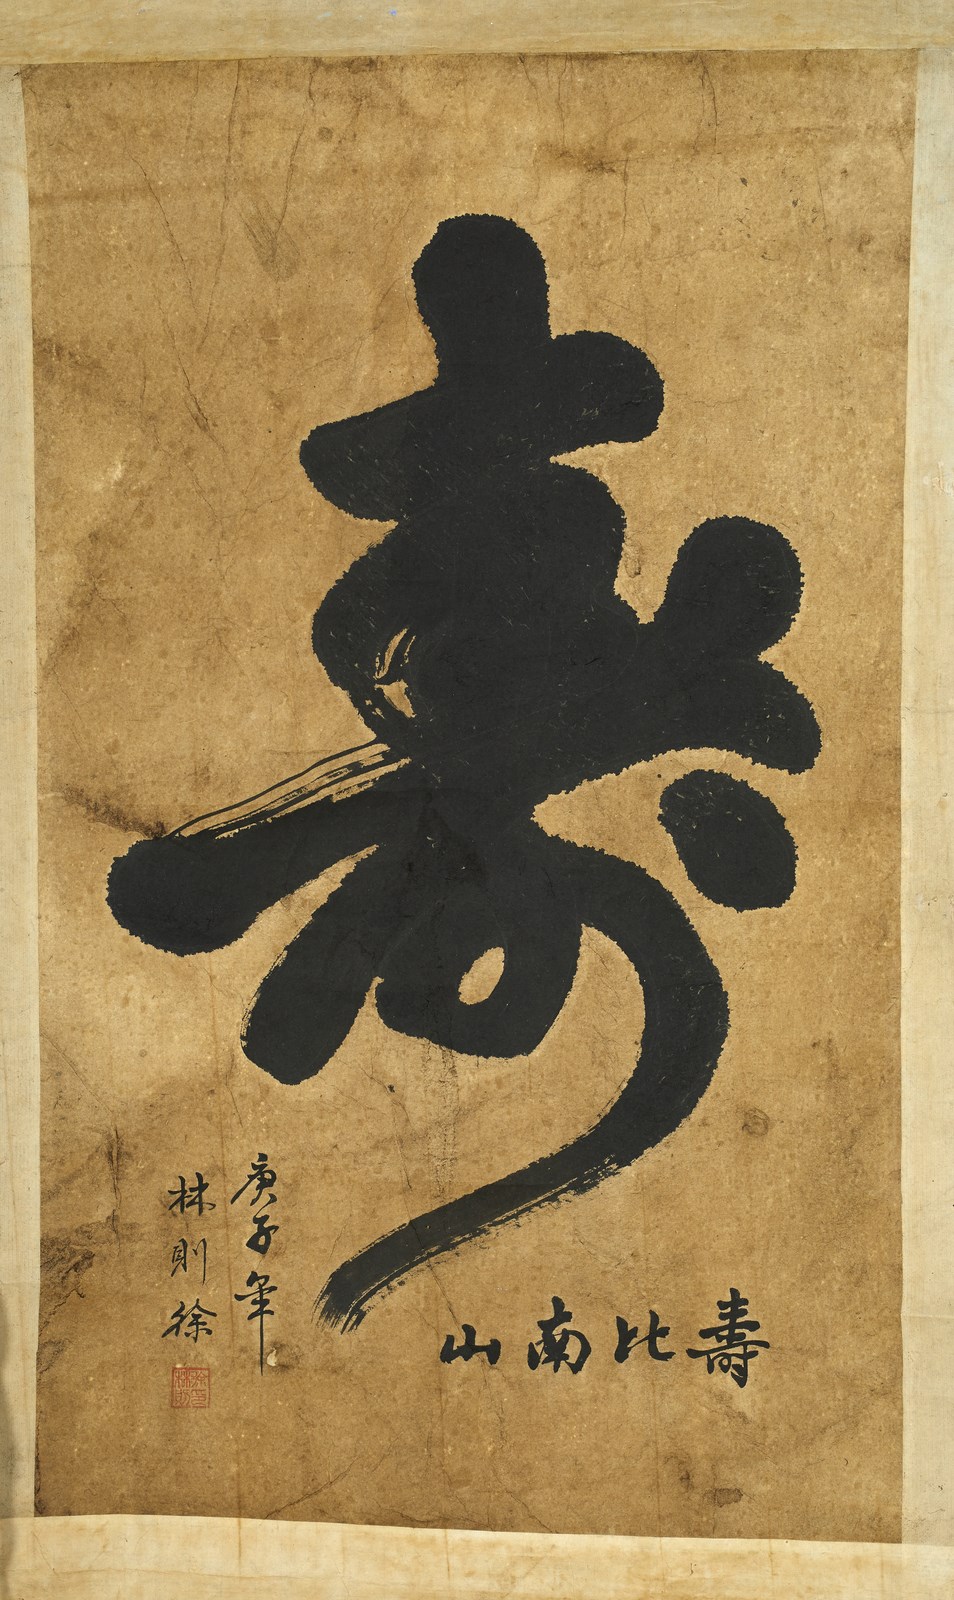 壽
壽比南山
庚子年
林則徐